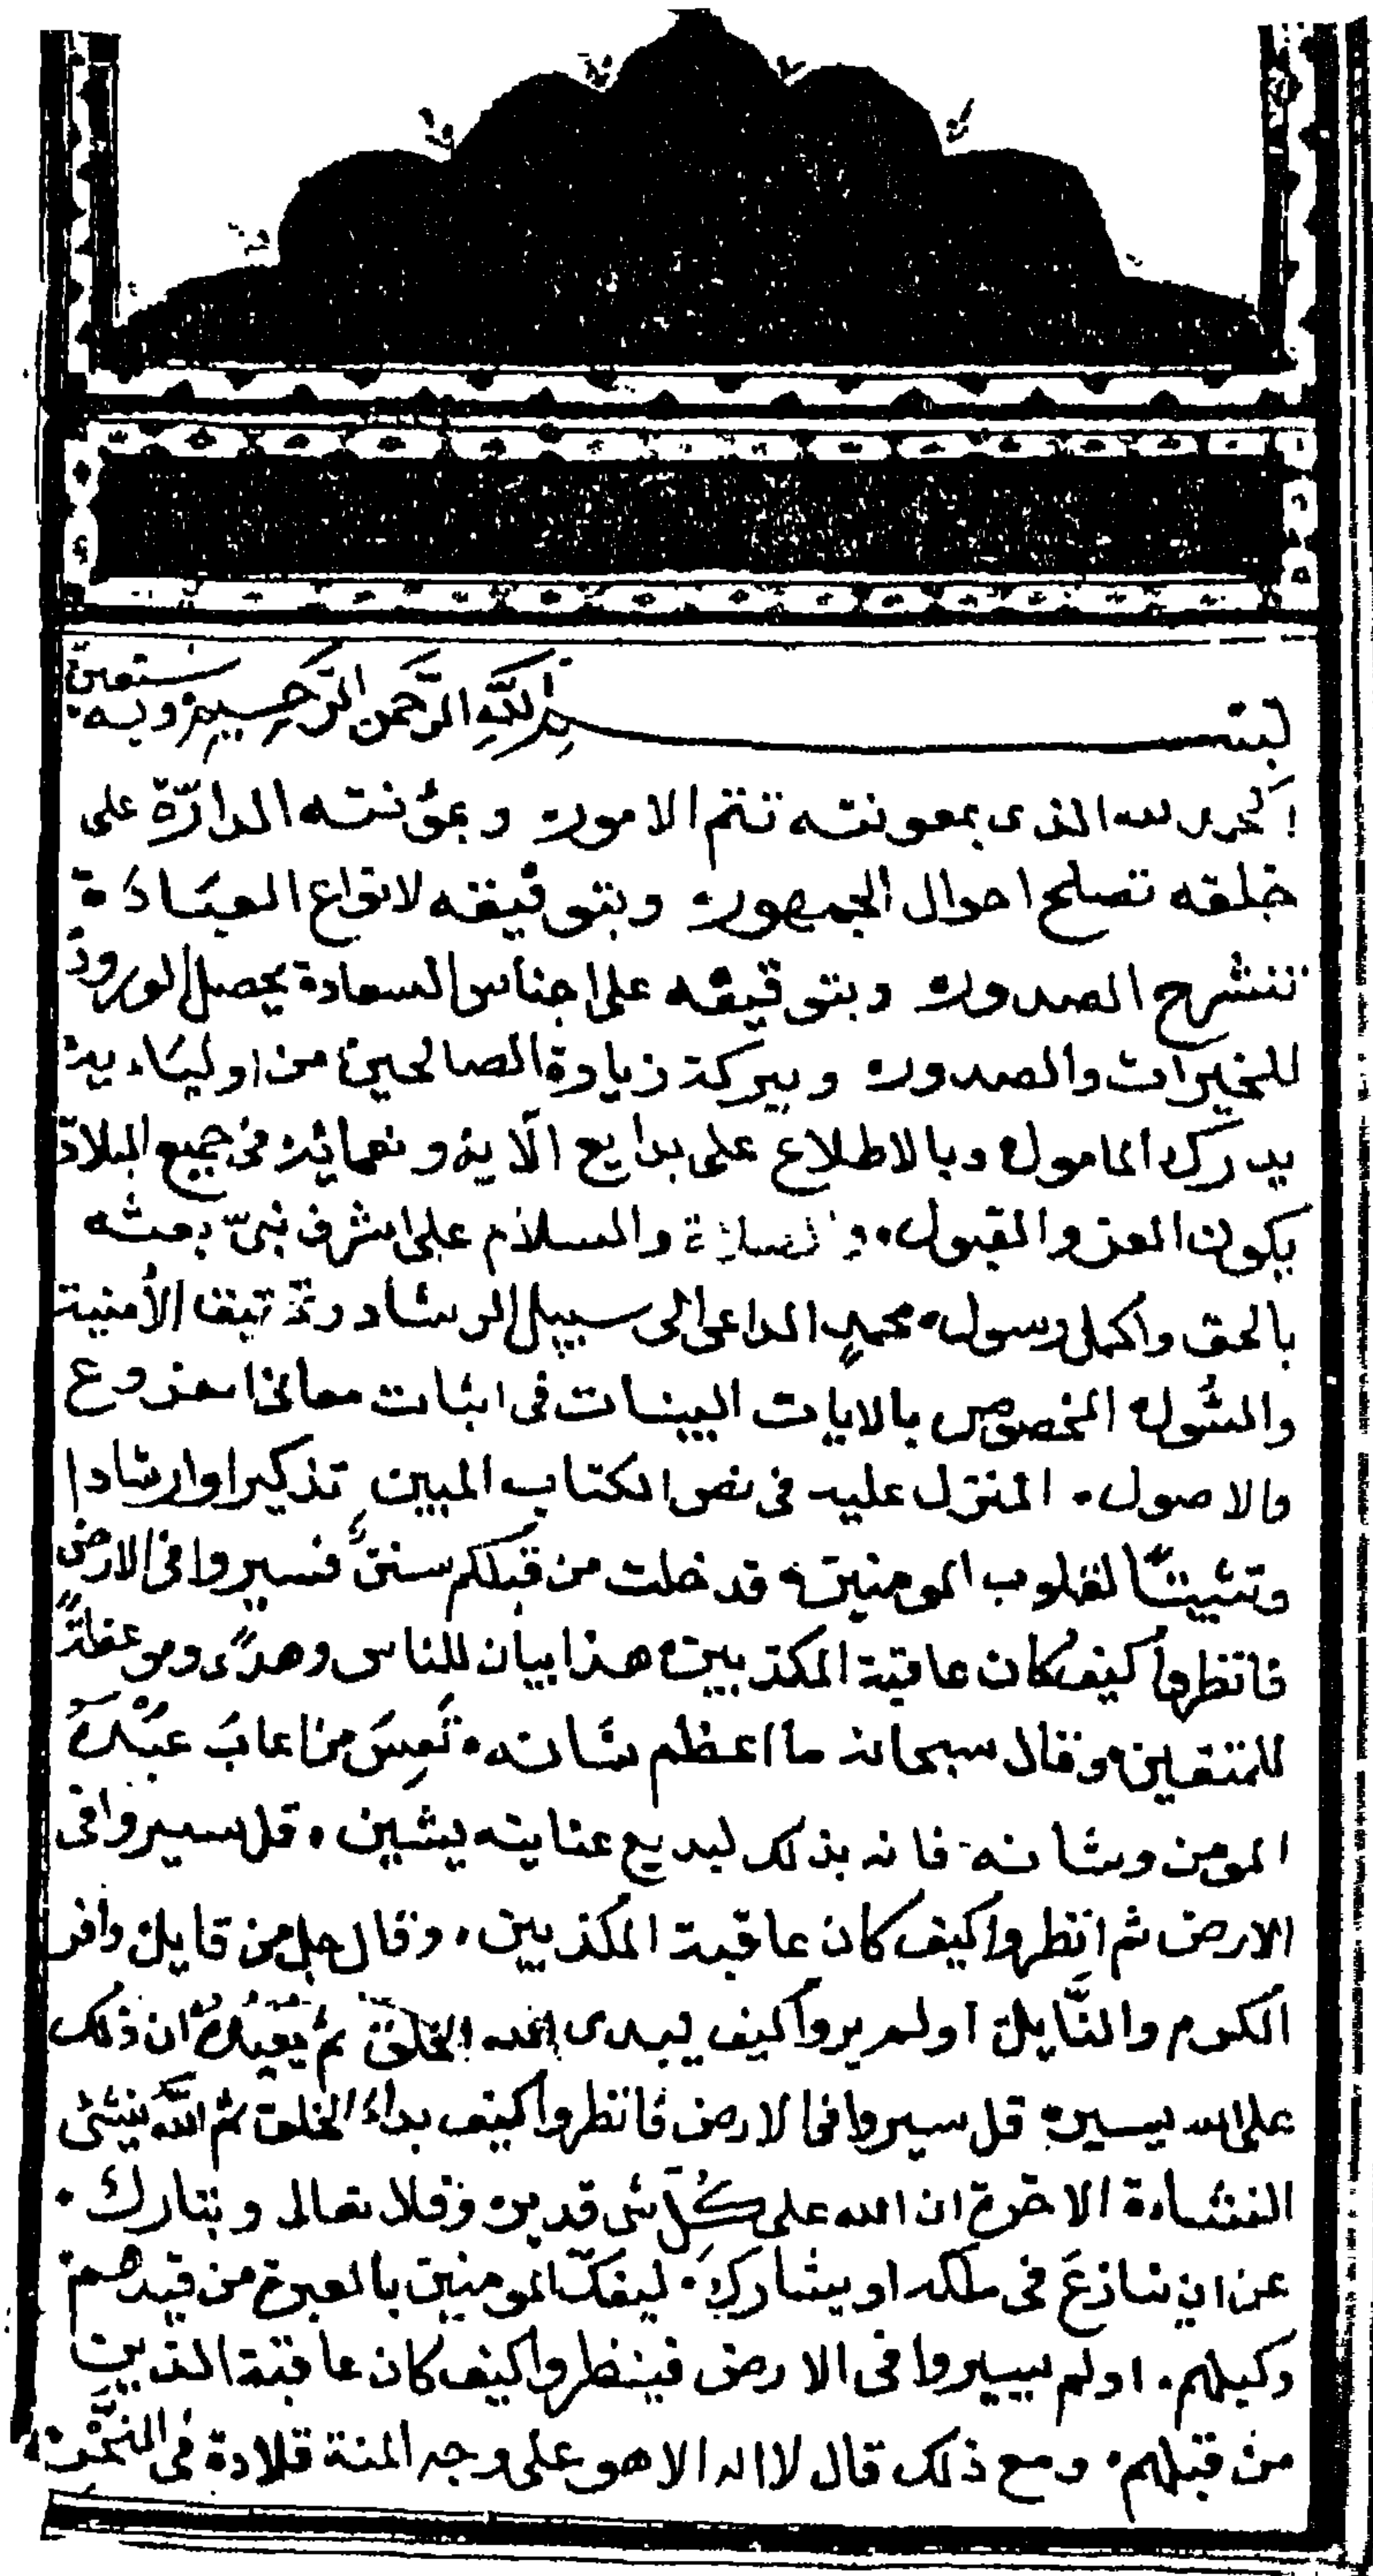 بسم الله الرحمن الرحيم وبه نستعين
الحمد لله الذى بمعونته تتم الامور وبمؤنته الدارّة على
خلقه تصلح احوال الجمهور وبتوفيقه لانواع العبادة
تنشرح الصدور وبتوقيفه على اجناس السعادة يحصل الورود
للخيرات والصدور وببركة زيارة الصالحين من اوليايه
يدرك المامول وبالاطلاع على بدايع الآيه ونعمائه فى جميع البلاد
يكون العز والقبول. والصلاة والسلام على اشرف نبىّ بعثه
بالحق واكمل رسول. محمدٍ الداعى الى سبيل الرشاد الأمنية
والسُّول المخصوص بالايات البينات فى اثبات معانى الفروع
والاصول. المنزل عليه فى نص الكتاب المبين تذكيرا وارشادا
وتثبيتًا لقلوب المومنين. قد خلت من قبلكم سننٌ فسيروا فى الارض
فانظروا كيف كان عاقبة المكذبين هذا بيان للناس وهدًى وموعظةً
للمتقين. وقال سبحانه ما اعظم شانه. تَعِسَ من اعابَ عَبْدَهُ
المومن وشانه فانه بذلك لبديع عنايته يشين. قل سيروا فى
الارض ثم انظروا كيف كان عاقبة المكذبين. وقال جل من قايل وافر
الكرم والنَّايل اولم يروا كيف يبدى الله الخلق ثم يُعِيدُهُ ان ذلك
على الله يسير. قل سيروا فى الارض فانظروا كيف بداء الخلق ثم اللّه ينشئ
النشاءة الاخرة ان الله على كُلّ شى قدير. وقال تعالى وتبارك.
عن ان ينازعَ فى ملكه او يشارك. ليفكّ المومنين بالعبرة من قيدهم
وكبلهم. اولم يسيروا فى الارض فينظروا كيف كان عاقبة الذين
من قبلهم. ومع ذلك قال لا اله الا هو على وجه المنة قلادة فى